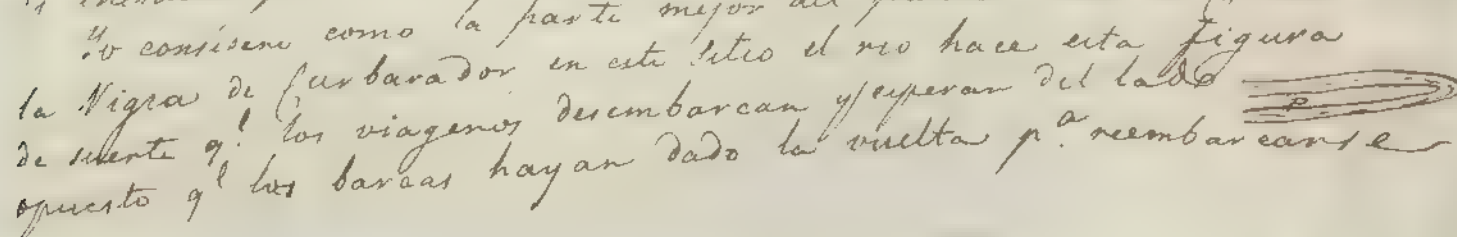 Yo considere como la parte mejor del
la Vigia de Curbarador en este sitio el rio hace esta figura
de suerte q.l los viageros desembarcan y esperan del lado
opuesto q.l las barcas hayan dado la vuelta p.a reembarcarse